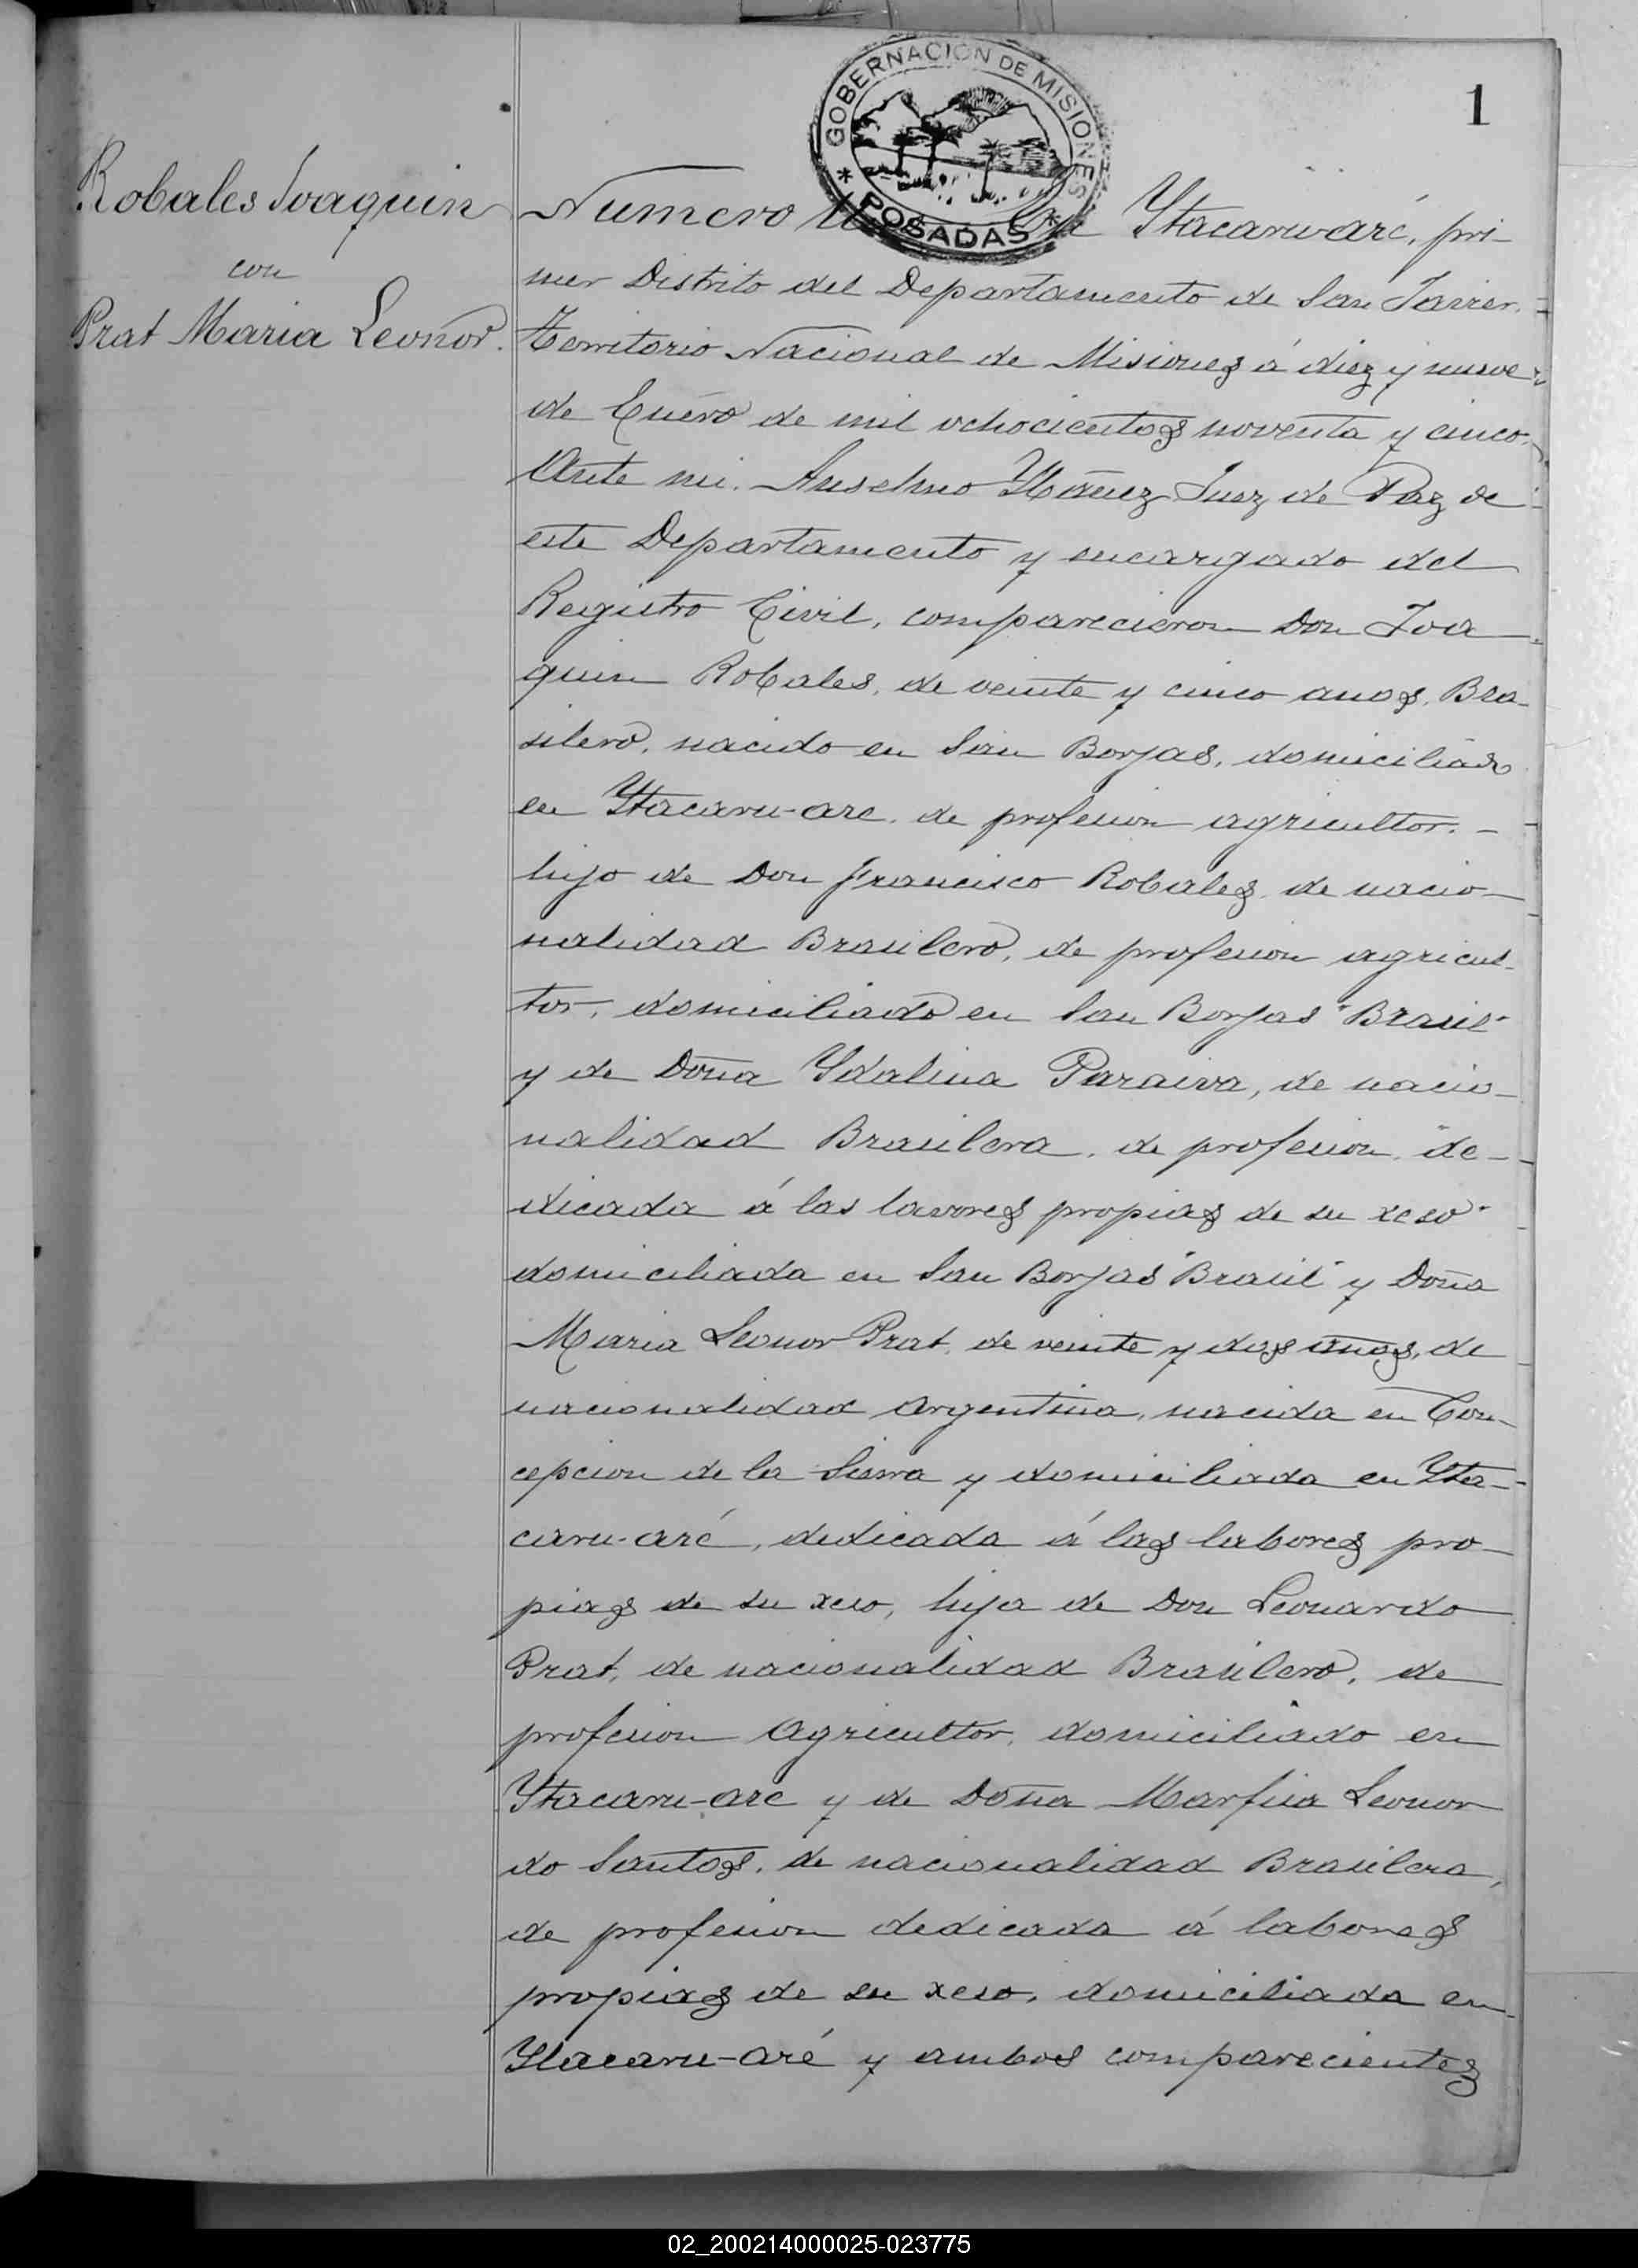 GOBERNACIÓN DE MISIONES
* POSADAS *
1
Robales Joaquin
con
Prat Maria Leonor.
Numero Ytacaruaré, pri-
mer Distrito del Departamento de San Javier.
Territorio Nacional de Misiones á diez y nueve
de Enero de mil ochocientos noventa y cinco.
Ante mi. Anselmo Ybañez Juez de Paz de
este Departamento y encargado del
Registro Civil, comparecieron Don Joa-
quin Robales, de veinte y cinco anos, Bra-
silero, nacido en San Borjas, domiciliado
en Ytacaru-are, de profesion agricultor. -
hijo de Don Francisco Robales, de nacio-
nalidad Brasilero, de profesion agricul-
tor, domiciliado en San Borjas "Brasil"
y de Doña Ydalina Paraiva, de nacio-
nalidad Brasilera, de profesion, de-
dicada á las lavores propias de su xeso
domiciliada en San Borjas "Brasil" y Doña
Maria Leonor Prat, de veinte y dos anos, de
nacionalidad Argentina, nacida en Con-
cepcion de la Sierra y domiciliada en Yta-
caru-aré, dedicada á las labores pro-
pias de su xeso, hija de Don Leonardo
Prat, de nacionalidad Brasilero, de
profesion Agricultor, domiciliado en
Ytacaru-are y de Doña Marfiia Leonor
do Santos, de nacionalidad Brasilera,
de profesion dedicada á labores
propias de su xeso, domiciliada en
Ytacaru-aré y ambos comparecientes
02_200214000025-023775